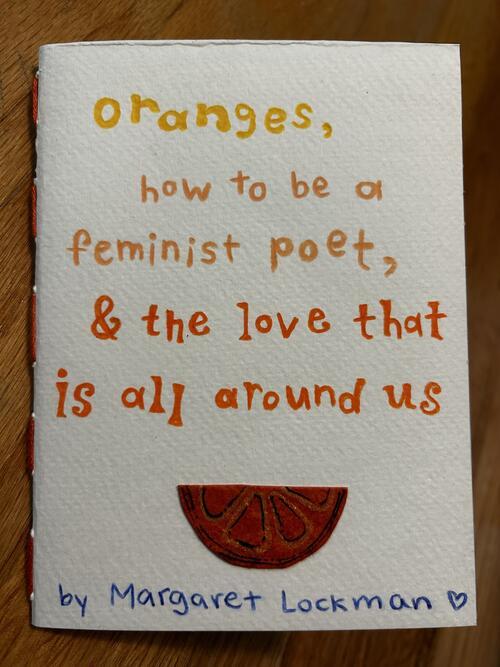 oranges,
how to be a
feminist poet,
& the love that
is all around us
by Margaret Lockman ♡